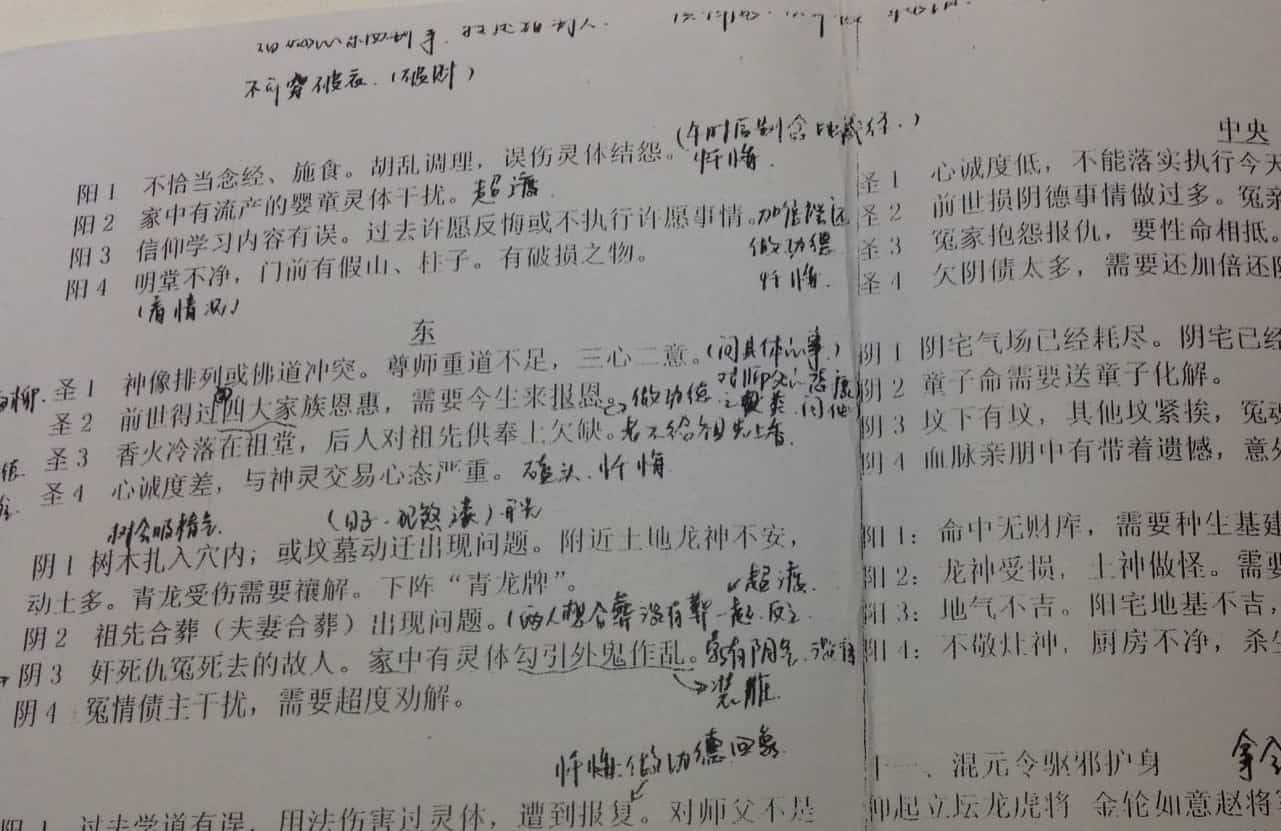 不可穿破衣.(破财)
阳1 不恰当念经、施食。胡乱调理，误伤灵体结怨。
忏悔.
阳2 家中有流产的婴童灵体干扰。超度
阳3 信仰学习内容有误。过去许愿反悔或不执行许愿事情。加倍偿还
做功德
阳4 明堂不净，门前有假山、柱子。有破损之物。
忏悔.
(看情况)
东
圣1 神像排列或佛道冲突。尊师重道不足，三心二意。(问具体的事)
圣2 前世得过四大家族恩惠，需要今生来报恩。做功德
圣3 香火冷落在祖堂，后人对祖先供奉上欠缺。老不给祖先上香.
圣4 心诚度差，与神灵交易心态严重。磕头.忏悔
树会吸精气
阴1 树木扎入穴内；或坟墓动迁出现问题。附近土地龙神不安，
动土多。青龙受伤需要禳解。下阵“青龙牌”。
超度.
阴2 祖先合葬（夫妻合葬）出现问题。(两人想合葬没有葬一起.反之
阴3 奸死仇冤死去的故人。家中有灵体勾引外鬼作乱。
阴4 冤情债主干扰，需要超度劝解。
忏悔.做功德回象
阳1 过去学道有误，用法伤害过灵体，遭到报复。对师父不是
中央
圣1 心诚度低，不能落实执行今天
圣2 前世损阴德事情做过多。冤亲
圣3 冤家抱怨报仇，要性命相抵。
圣4 欠阴债太多，需要还加倍还阴
阴1 阴宅气场已经耗尽。阴宅已经
阴2 童子命需要送童子化解。
阴3 坟下有坟，其他坟紧挨，冤动
阴4 血脉亲朋中有带着遗憾，意外
阳1：命中无财库，需要种生基建
阳2：龙神受损，土神做怪。需要
阳3：地气不吉。阳宅地基不吉，
阳4：不敬灶神，厨房不净，杀生
十一、混元令驱邪护身
仰起立坛龙虎将 金轮如意赵将军